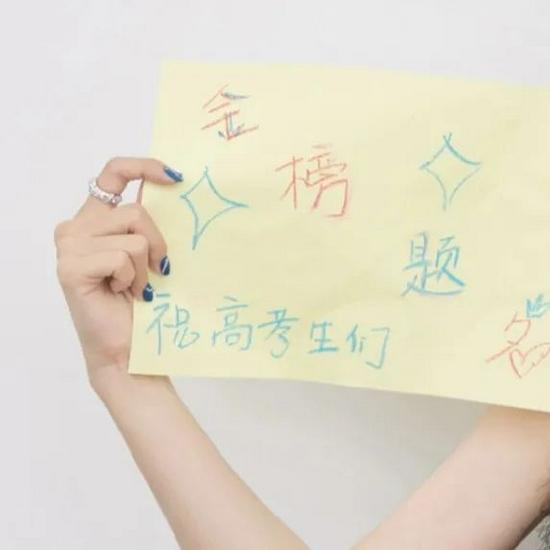 金榜题名
祝高考生们